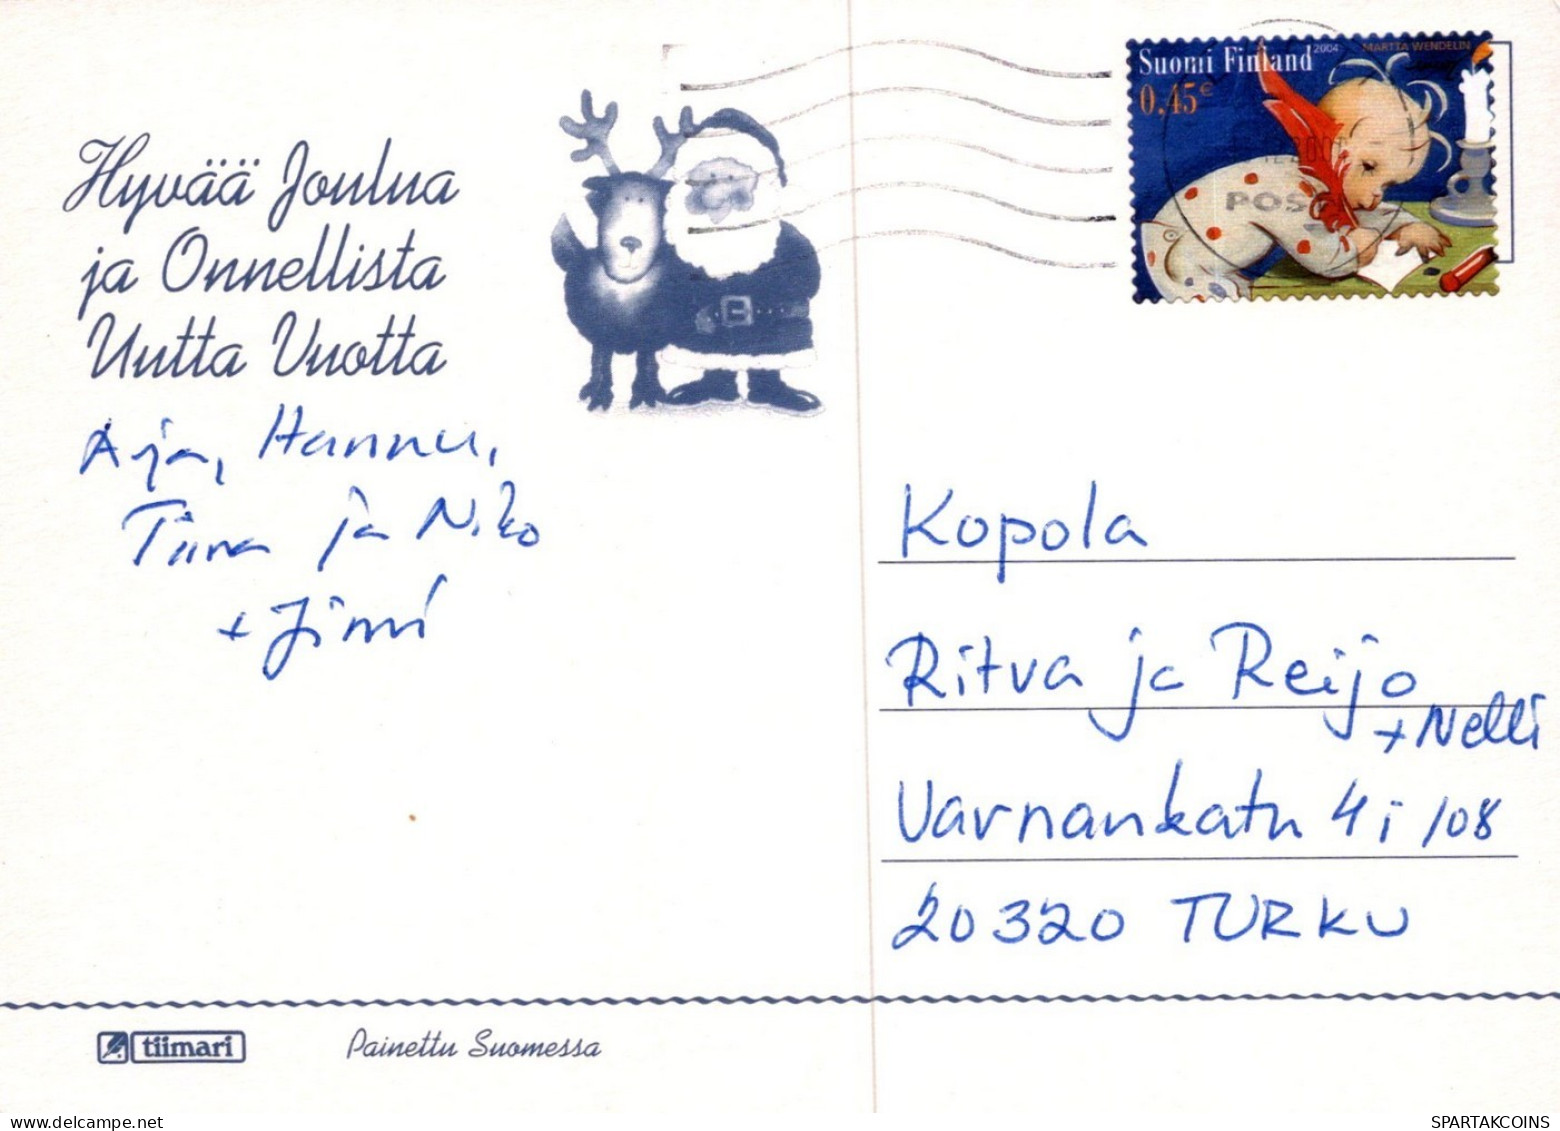 Suomi Finland 2004 MARTTA WENDELIN
0,45€
POST
Hyvää Joulua
ja Onnellista
Uutta Vuotta
Arja, Hannu,
Tiina ja Niko
+ Jimi
Kopola
Ritva ja Reijo
+ Nelli
Varnankatu 4 i 108
20320 TURKU
tiimari Painettu Suomessa
https://www.delcampe.net
SPARTAKCOINS